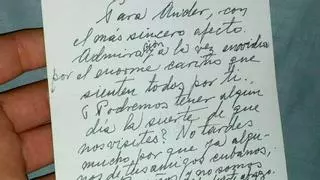 Para Ander, con
el más sincero afecto.
Admiración a la vez envidia
por el enorme cariño que
sienten todos por ti.
¿Podremos tener algún
día la suerte de que
nos visites? No tardes
mucho porque ya algu-
nos de tus amigos cubanos,
y no somos